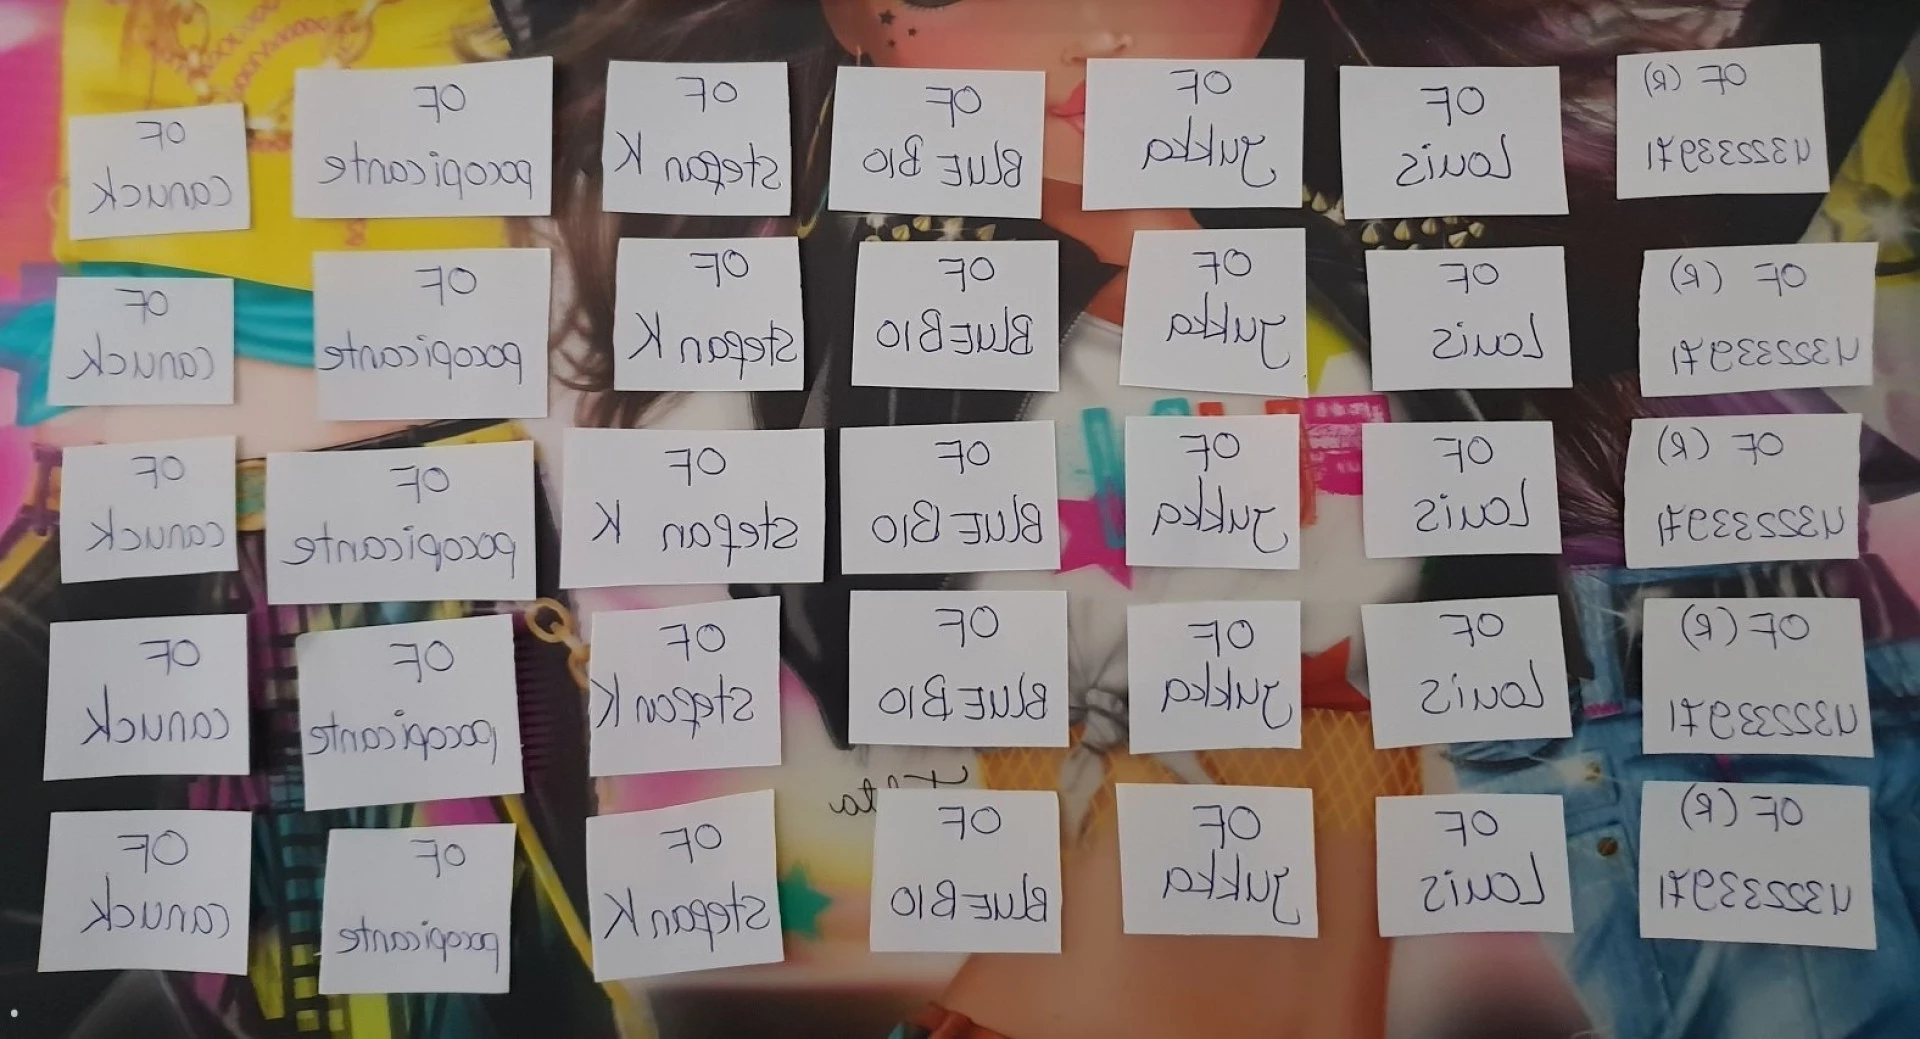 OF (R)
432233971
OF
Louis
OF
Jukka
OF
BLUE B10
OF
stefan K
OF
pocopicante
OF
canuck
OF (R)
432233971
OF
Louis
OF
Jukka
OF
BLUE B10
OF
stefan K
OF
pocopicante
OF
canuck
OF (R)
432233971
OF
Louis
OF
Jukka
OF
BLUE B10
OF
stefan K
OF
pocopicante
OF
canuck
OF (R)
432233971
OF
Louis
OF
Jukka
OF
BLUE B10
OF
stefan K
OF
pocopicante
OF
canuck
OF (R)
432233971
OF
Louis
OF
Jukka
OF
BLUE B10
OF
stefan K
OF
pocopicante
OF
canuck